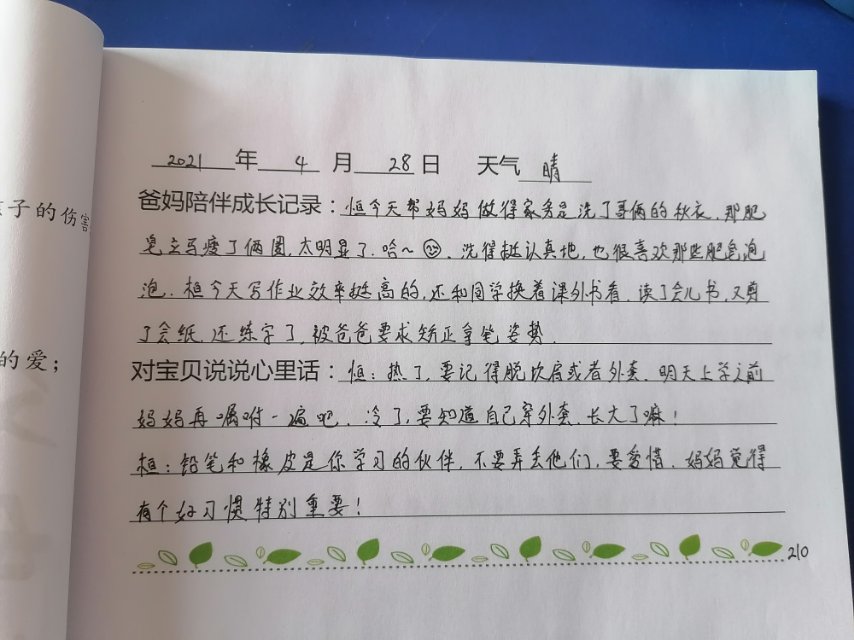 子的伤害
的爱；
2021年 4 月 28 日 天气 晴
爸妈陪伴成长记录：恒今天帮妈妈做得家务是洗了哥俩的秋衣，那肥
皂立马瘦了俩圈，太明显了，哈~，洗得挺认真地，也很喜欢那些肥皂泡
泡．桓今天写作业效率挺高的，还和同学换着课外书看，读了会儿书，又剪
了会纸，还练字了，被爸爸要求矫正拿笔姿势．
对宝贝说说心里话：恒：热了，要记得脱坎肩或者外套．明天上学之前
妈妈再嘱咐一遍吧．冷了，要知道自己穿外套，长大了嘛！
桓：铅笔和橡皮是你学习的伙伴，不要弄丢他们，要爱惜．妈妈觉得
有个好习惯特别重要！
210